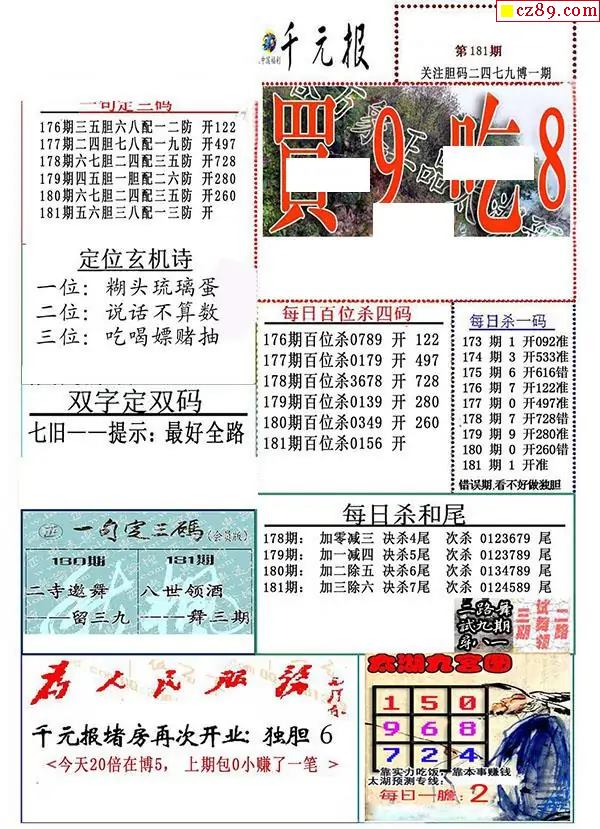 cz89.com
千元报
中国福利
第181期
关注胆码二四七九博一期
一句定三码
176期三五胆六八配一二防 开122
177期二四胆七八配一九防 开497
178期六七胆二四配三五防 开728
179期四五胆一胆配二六防 开280
180期六七胆二四配三五防 开260
181期五六胆三八配一三防 开
買9吃8
定位玄机诗
一位：糊头琉璃蛋
二位：说话不算数
三位：吃喝嫖赌抽
双字定双码
七旧——提示：最好全路
每日百位杀四码
176期百位杀0789 开 122
177期百位杀0179 开 497
178期百位杀3678 开 728
179期百位杀0139 开 280
180期百位杀0349 开 260
181期百位杀0156 开
每日杀一码
173 期 1 开092准
174 期 3 开533准
175 期 6 开616错
176 期 7 开122准
177 期 0 开497准
178 期 7 开728错
179 期 9 开280准
180 期 0 开260错
181 期 1 开准
错误期,看不好做独胆
一句定三码(会员版)
180期
二寺邀舞
——留三九
181期
八世领酒
——舞三期
每日杀和尾
178期： 加零减三 决杀4尾 次杀 0123679 尾
179期： 加一减四 决杀5尾 次杀 0123789 尾
180期： 加二除五 决杀6尾 次杀 0134789 尾
181期： 加三除六 决杀7尾 次杀 0124589 尾
二路舞
试九期
三期
试舞领
二路
为人民服务
千元报堵房再次开业：独胆 6
<今天20倍在博5， 上期包0小赚了一笔 >
太湖九宫图
1 5 0
9 6 8
7 2 4
靠实力吃饭，靠本事赚钱
太湖预测专线：
每日一膽：2